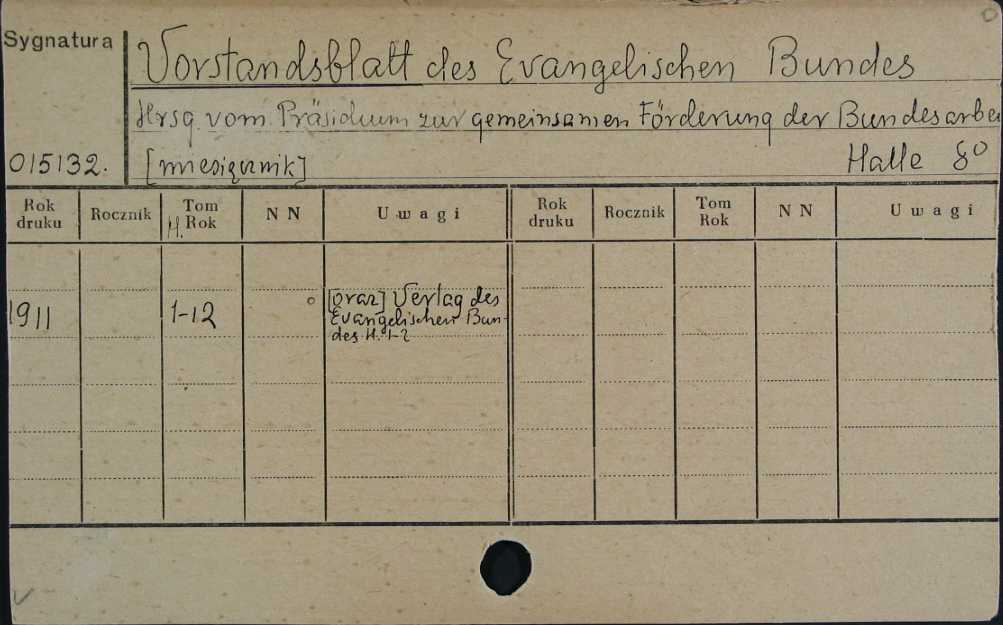 Sygnatura
Vorstandsblatt des Evangelischen Bundes
Hrsg. vom Präsidium zur gemeinsamen Förderung der Bundesarbei
015132. [miesięcznik] Halle 8°
Rok druku Rocznik Tom H. Rok N N Uwagi Rok druku Rocznik Tom Rok N N Uwagi
1911 1-12 [oraz] Verlag des
Evangelischen Bun-
des H. 1-2